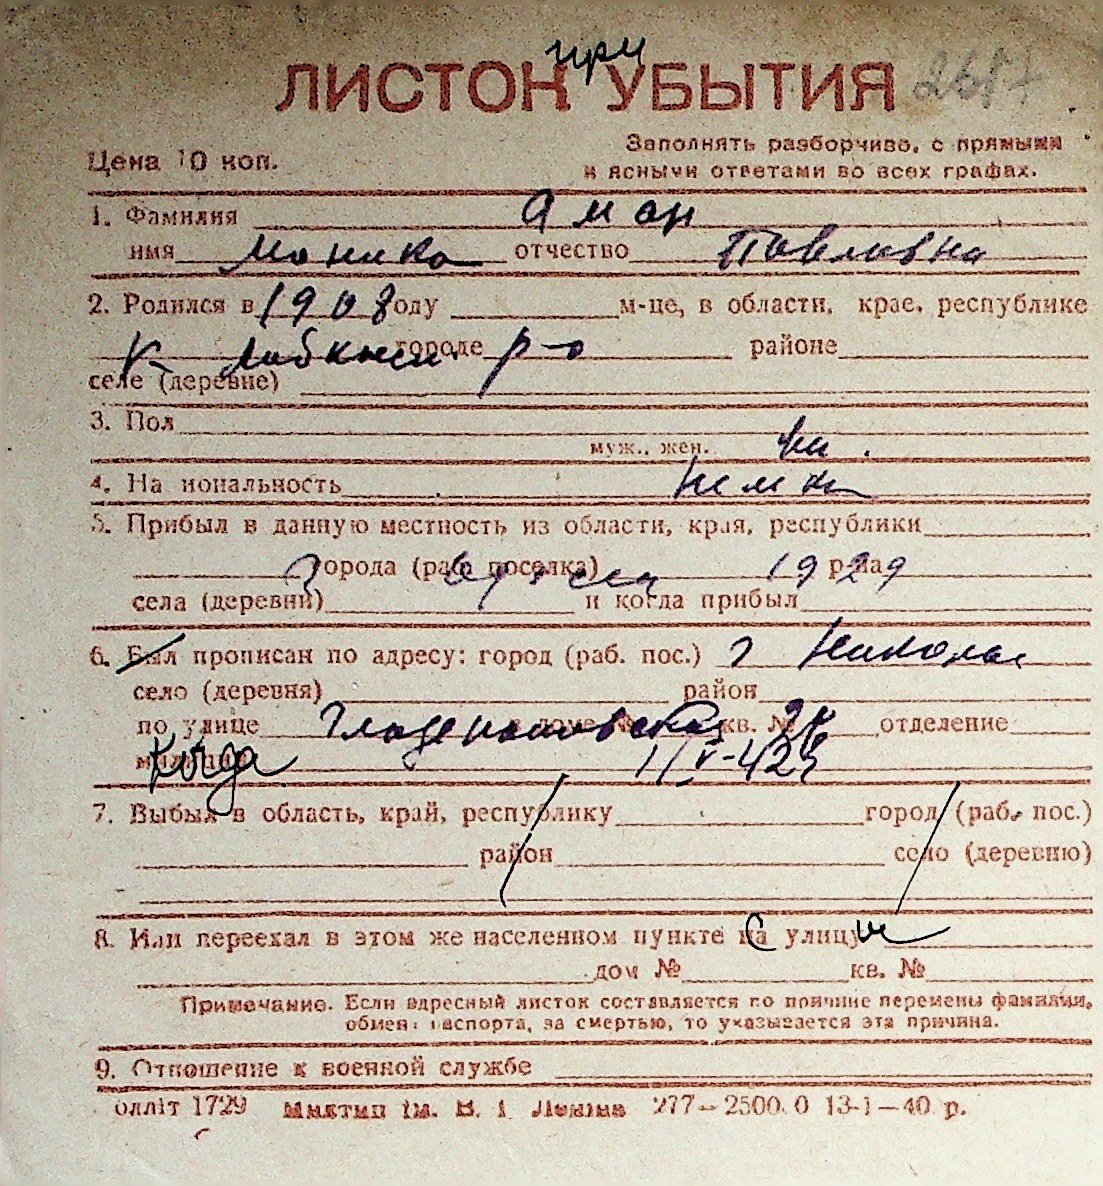 при
ЛИСТОК УБЫТИЯ 2617
Цена 10 коп.
Заполнять разборчиво, с прямыми
и ясными ответами во всех графах.
1. Фамилия Яман
имя Моника отчество Павловна
2. Родился в 1908 году м-це, в области, крае, республике
городе р-о районе
селе (деревне)
3. Пол
муж., жен. ж.
4. На иональность немка
5. Прибыл в данную местность из области, края, республики
города (раб. поселка) 1929 р-на
села (деревни) и когда прибыл
6. Был прописан по адресу: город (раб. пос.) г Николаев
село (деревня) район
по улице в доме № кв. № отделение
милиции
7. Выбыл в область, край, республику город (раб. пос.)
район село (деревню)
8. Или переехал в этом же населенном пункте на улицу
дом № кв. №
Примечание. Если адресный листок составляется по причине перемены фамилии,
обмена паспорта, за смертью, то указывается эта причина.
9. Отношение к военной службе
олліт 1729 ім. В. І Леніна 277—2500.0 13-1—40 р.